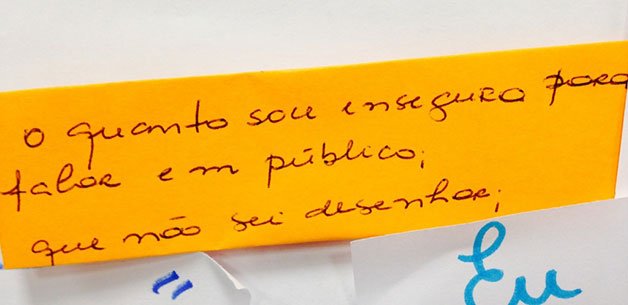 o quanto sou inseguro para
falar em público;
que não sei desenhar;
"
Eu